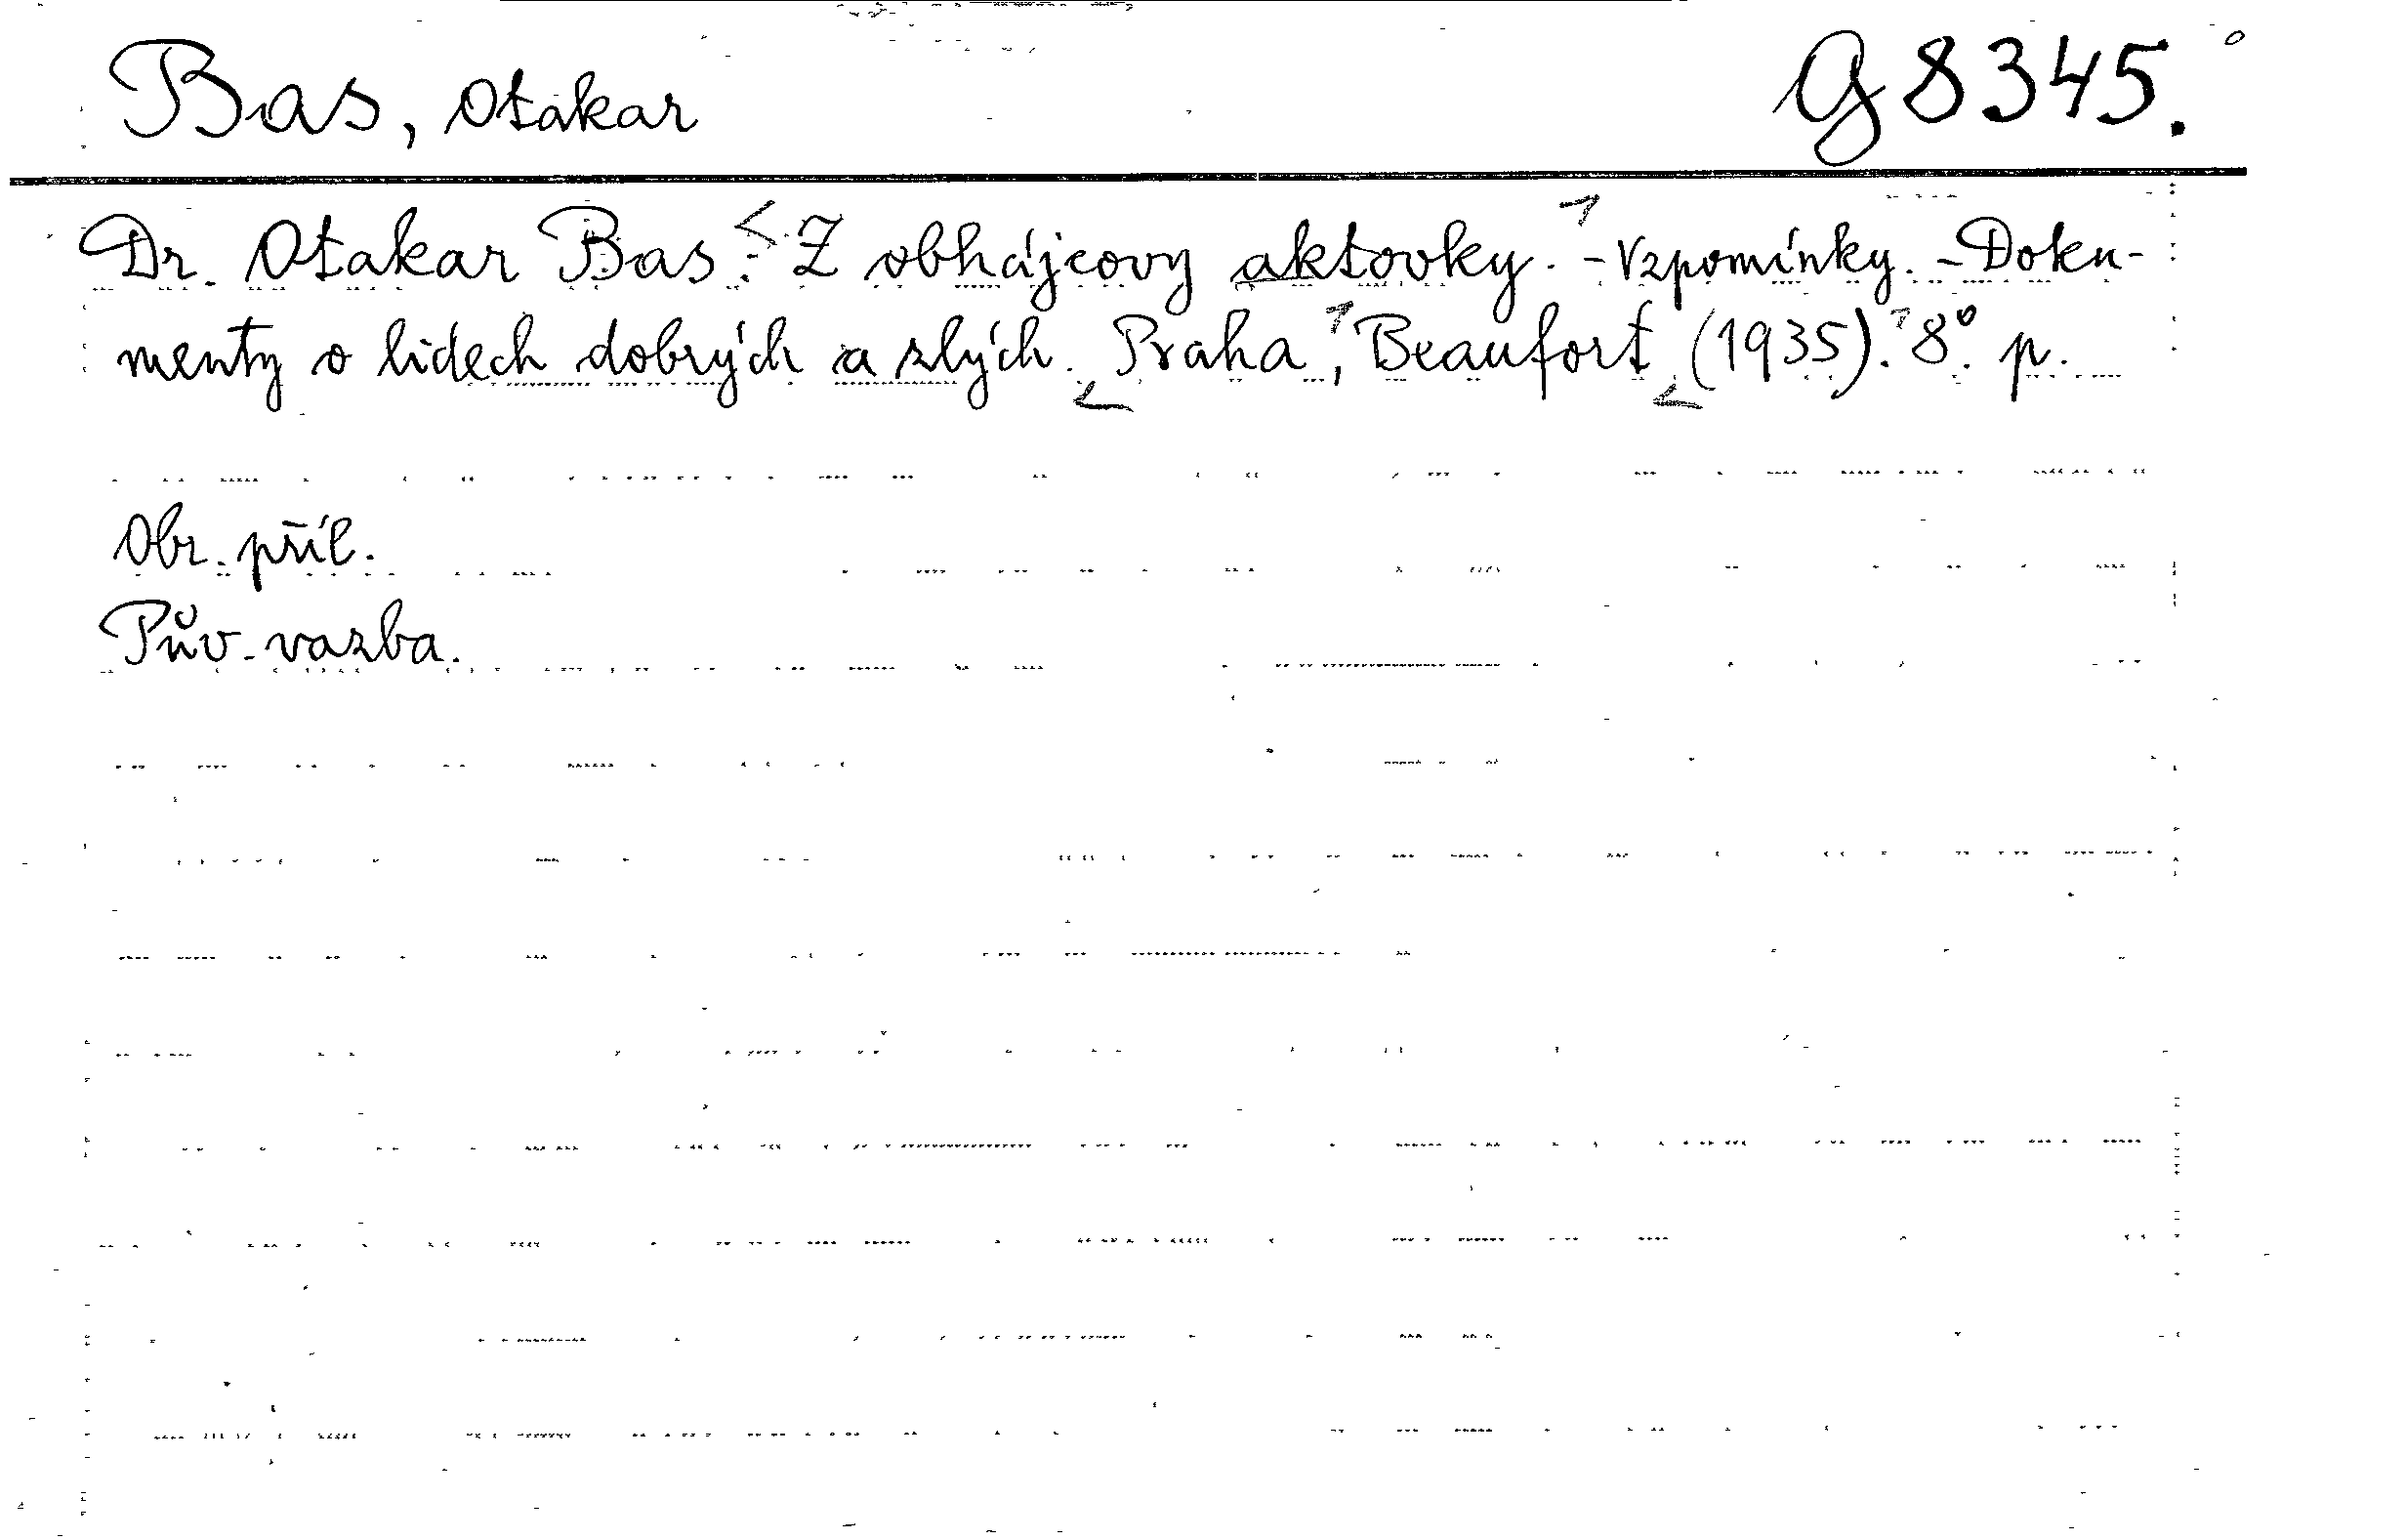 Bas, Otakar G 8345.
Dr. Otakar Bas: Z obhájcovy aktovky. - Vzpomínky. - Doku-
menty o lidech dobrých a zlých. Praha, Beaufort (1935). 8°. p.
Obr. příl.
Pův. vazba.